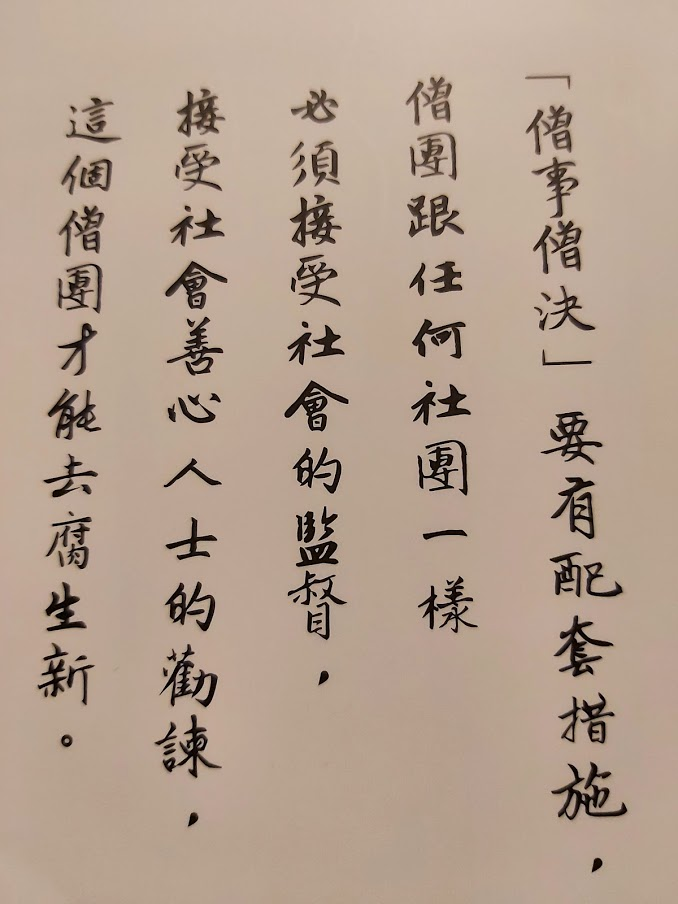 「僧事僧決」要有配套措施，
僧團跟任何社團一樣
必須接受社會的監督，
接受社會善心人士的勸諫，
這個僧團才能去腐生新。